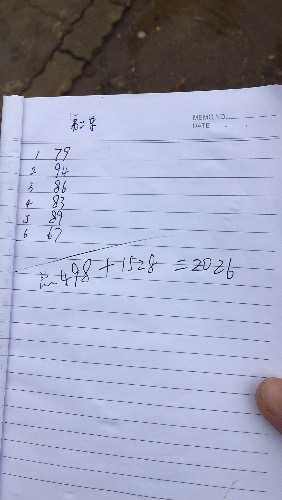 MEMO NO.
DATE
1 79
2 94
3 86
4 83
5 89
6 67
498 + 1528 = 2026